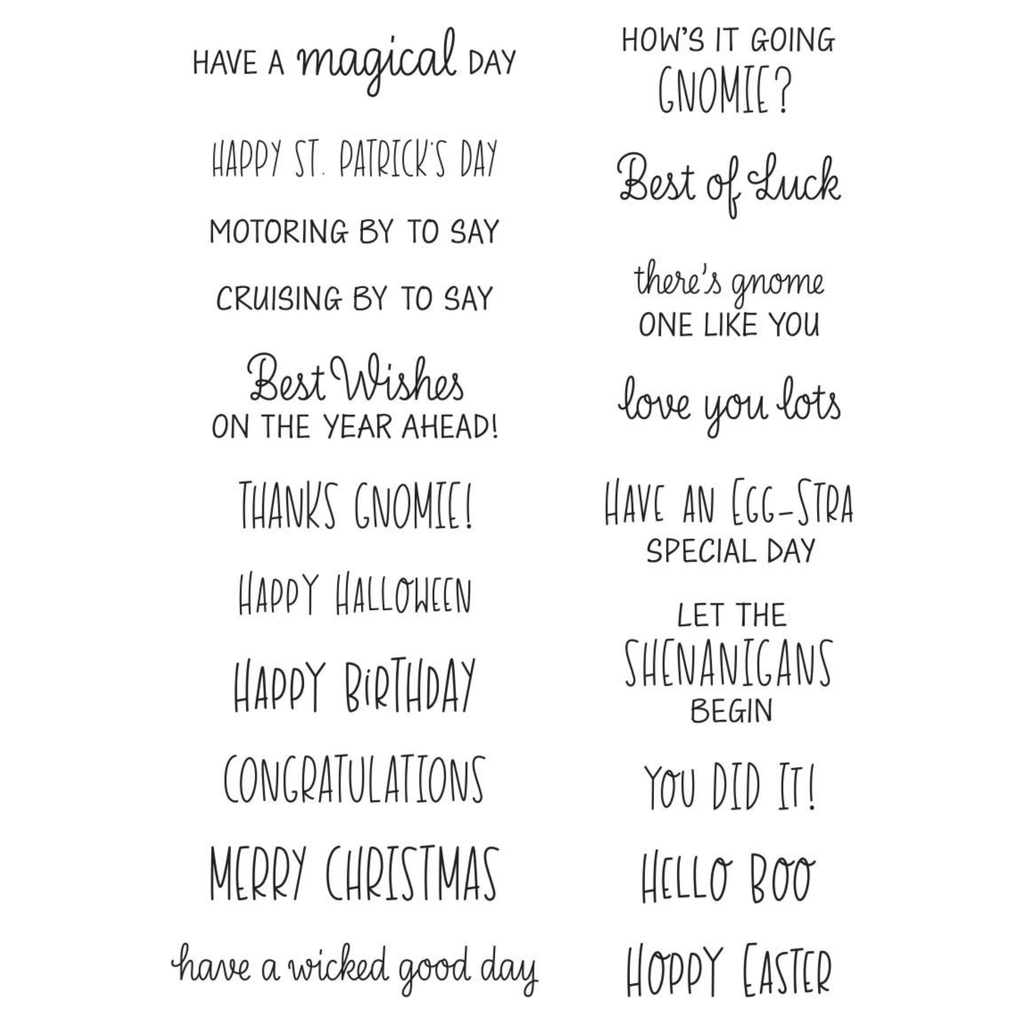 HAVE A magical DAY
HAPPY ST. PATRICK'S DAY
MOTORING BY TO SAY
CRUISING BY TO SAY
Best Wishes
ON THE YEAR AHEAD!
THANKS GNOMIE!
HAPPY HALLOWEEN
HAPPY BiRTHDAY
CONGRATULATIONS
MERRY CHRISTMAS
have a wicked good day
HOW'S IT GOING
GNOMIE?
Best of Luck
there's gnome
ONE LIKE YOU
love you lots
HAVE AN EGG-STRA
SPECIAL DAY
LET THE
SHENANIGANS
BEGIN
YOU DID IT!
HELLO BOO
HOPPY EASTER